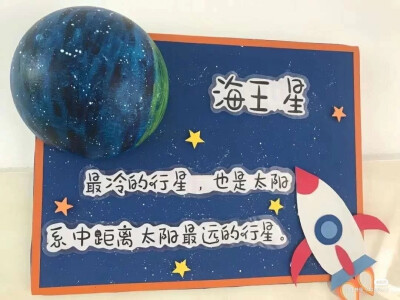 海王星
最冷的行星，也是太阳
系中距离太阳最远的行星。